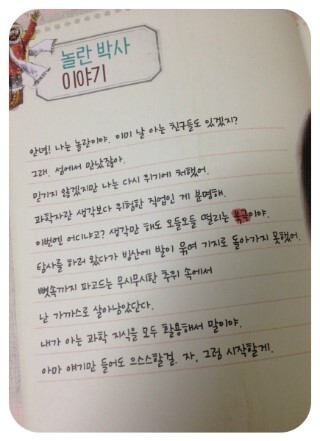 놀란 박사
이야기
안녕! 나는 놀란이야. 이미 날 아는 친구들도 있겠지?
그래. 섬에서 만났잖아.
믿기지 않겠지만 나는 다시 위기에 처했어.
과학자란 생각보다 위험한 직업인 게 분명해.
이번엔 어디냐고? 생각만 해도 오들오들 떨리는 북극이야.
탐사를 하러 왔다가 빙산에 발이 묶여 기지로 돌아가지 못했어.
뼛속까지 파고드는 무시무시한 추위 속에서
난 가까스로 살아남았단다.
내가 아는 과학 지식을 모두 활용해서 말이야.
아마 얘기만 들어도 으스스할걸. 자, 그럼 시작할게.